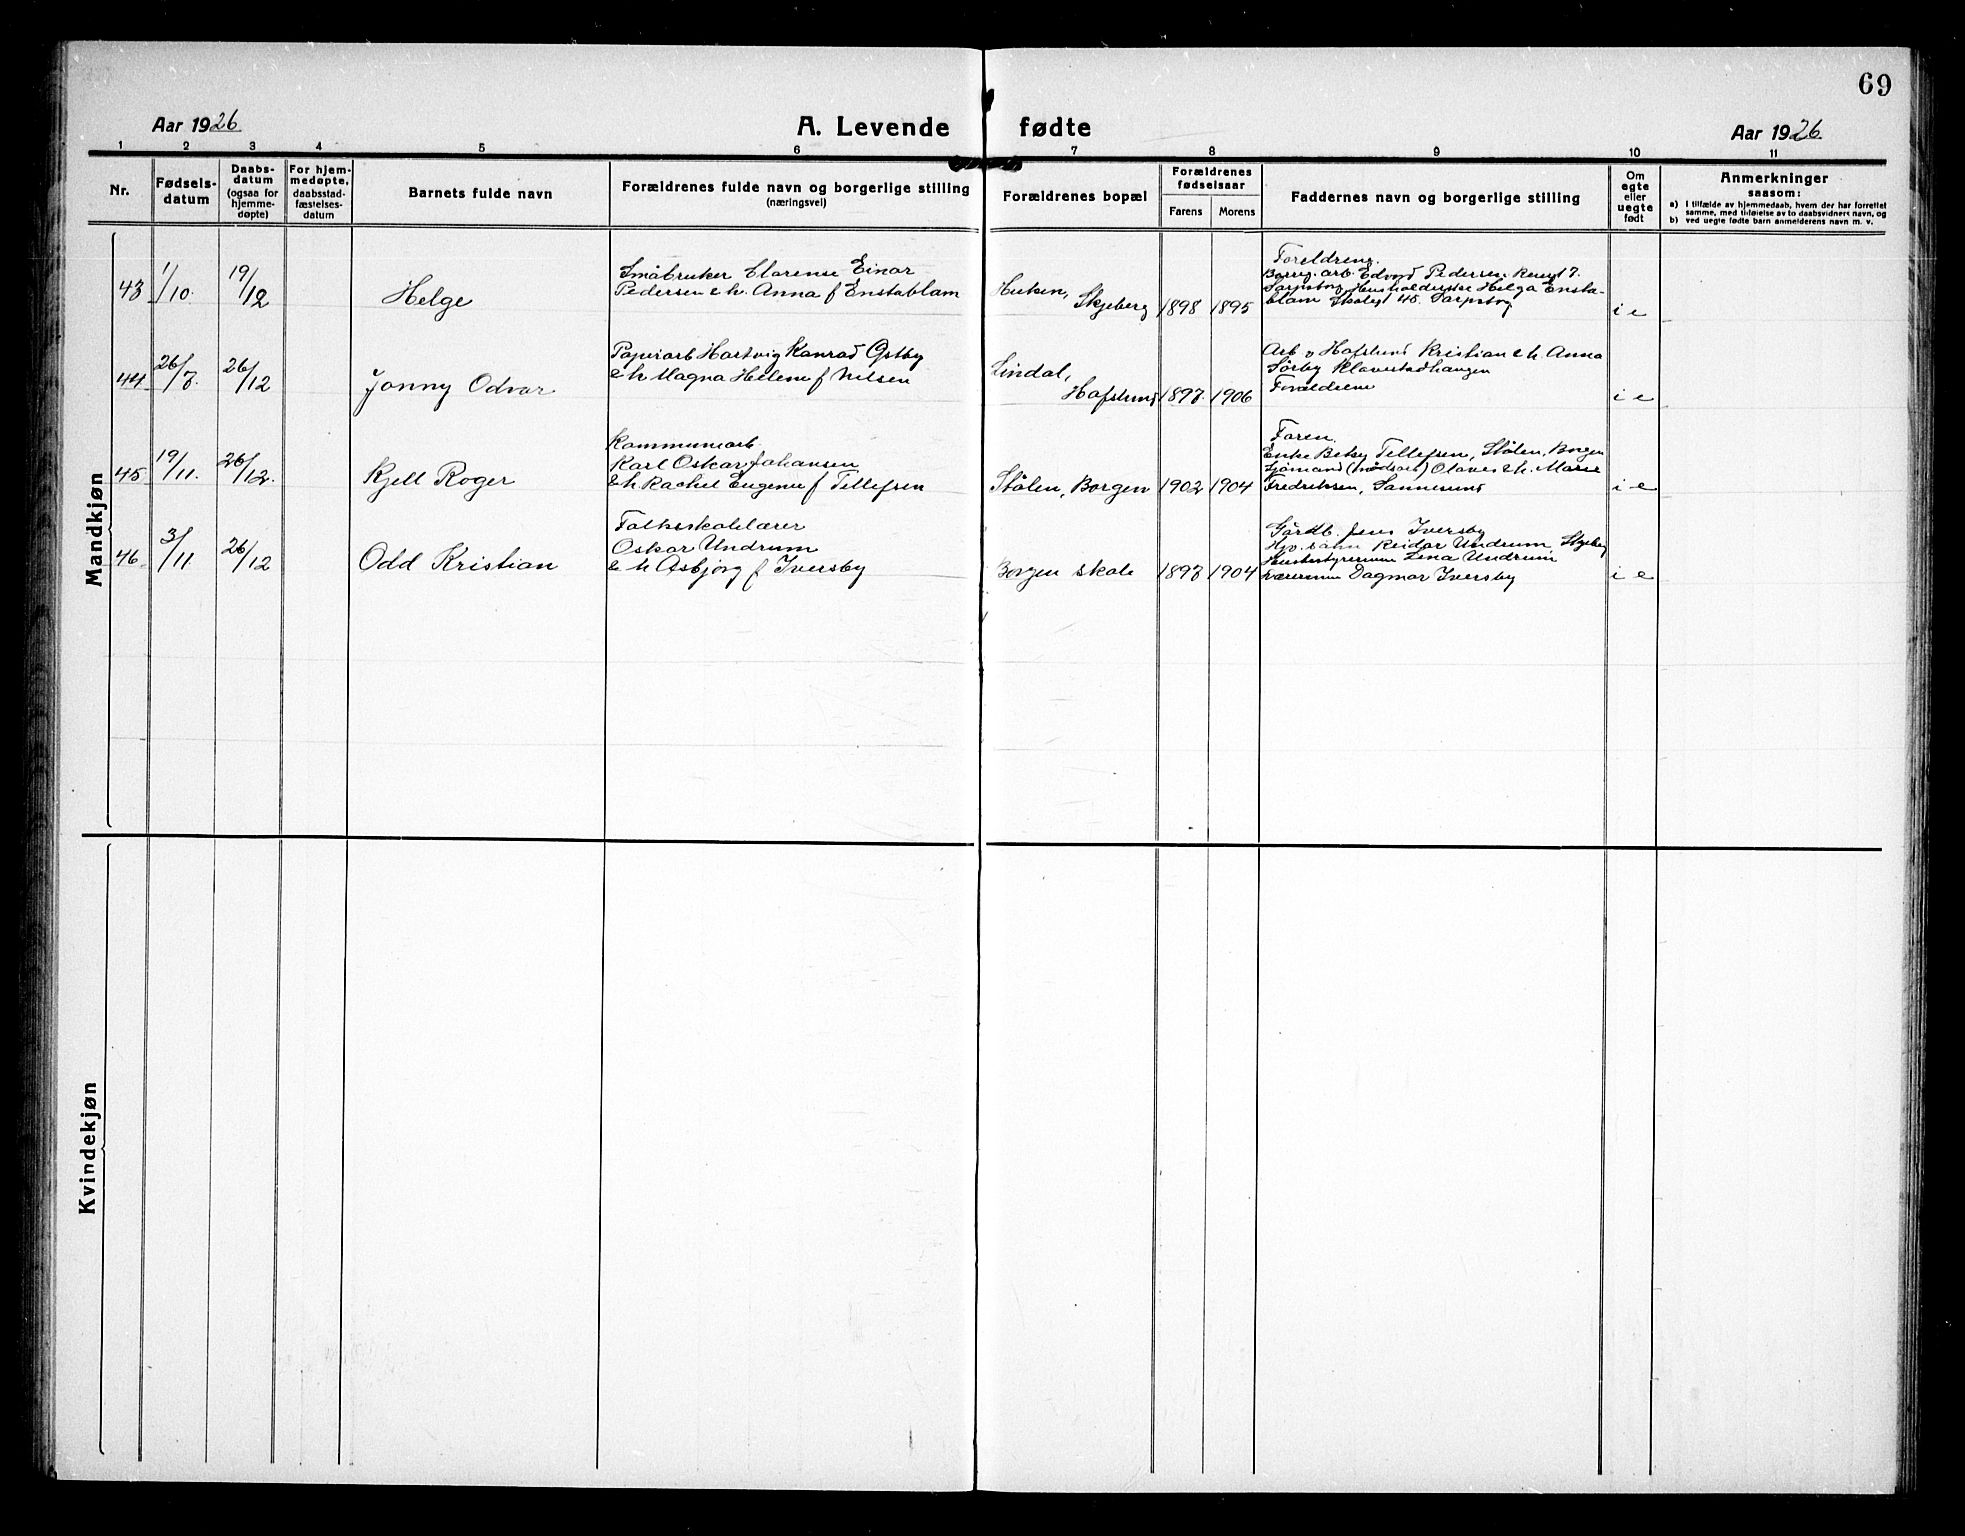 69
Aar 1926
A. Levende fødte
Aar 1926
1 2 3 4 5 6 7 8 9 10 11
Nr.
Fødsels-
datum
Daabs-
datum
(ogsaa for
hjemme-
døpte)
For hjem-
medøpte,
daabsstad-
fæstelses-
datum
Barnets fulde navn
Forældrenes fulde navn og borgerlige stilling
(næringsvei)
Forældrenes bopæl
Forældrenes
fødselsaar
Farens Morens
Faddernes navn og borgerlige stilling
Om
egte
eller
uegte
født
Anmerkninger
saasom:
a) I tilfælde av hjemmedaab, hvem der har forrettet
samme, med tilføielse av to daabsvidners navn, og
b) ved uegte fødte barn anmelderens navn m. v.
Mandkjøn
43
1/10.
19/12
Helge
Småbruker Clarense Einar
Pedersen & h. Anna f Enstablam
Skjeberg
1898 1895
Foreldrene.
Borrg. arb. Edvard Pedersen
Sarpsborg, Husholderske Helga Ensta-
blam Skolegt 45. Sarpsborg
i e
44
26/7.
26/12
Jonny Odvar
Papirarb Hartvig Konrad Østby
& h Magna Helene f Nilsen
Lindal,
Hafslund
1897. 1906
Arb v Hafslund Kristian & h. Anna
Sørby Klavestadhaugen
Forældrene
i e
45
19/11.
26/12.
Kjell Roger
Kommunearb.
Karl Oskar Johansen
& h Rachel Eugenie f Tellefsen
Stålen, Borgen
1902 1904
Faren.
Enke Betsy Tellefsen, Stålen, Borgen
Sjømand (nødsarb) Olaves & h. Marie
Fredriksen, Sannesund
i e
46
3/11.
26/12
Odd Kristian
Folkeskolelærer
Oskar Undrum
& h Asbjørg f Iversby
Borgen skole
1897 1904
Gårdb. Jens Iversby
Reidar Undrum, Skjeberg
Husbestyrerinne Lena Undrum
Lærerinne Dagmar Iversby
i e
Kvindekjøn